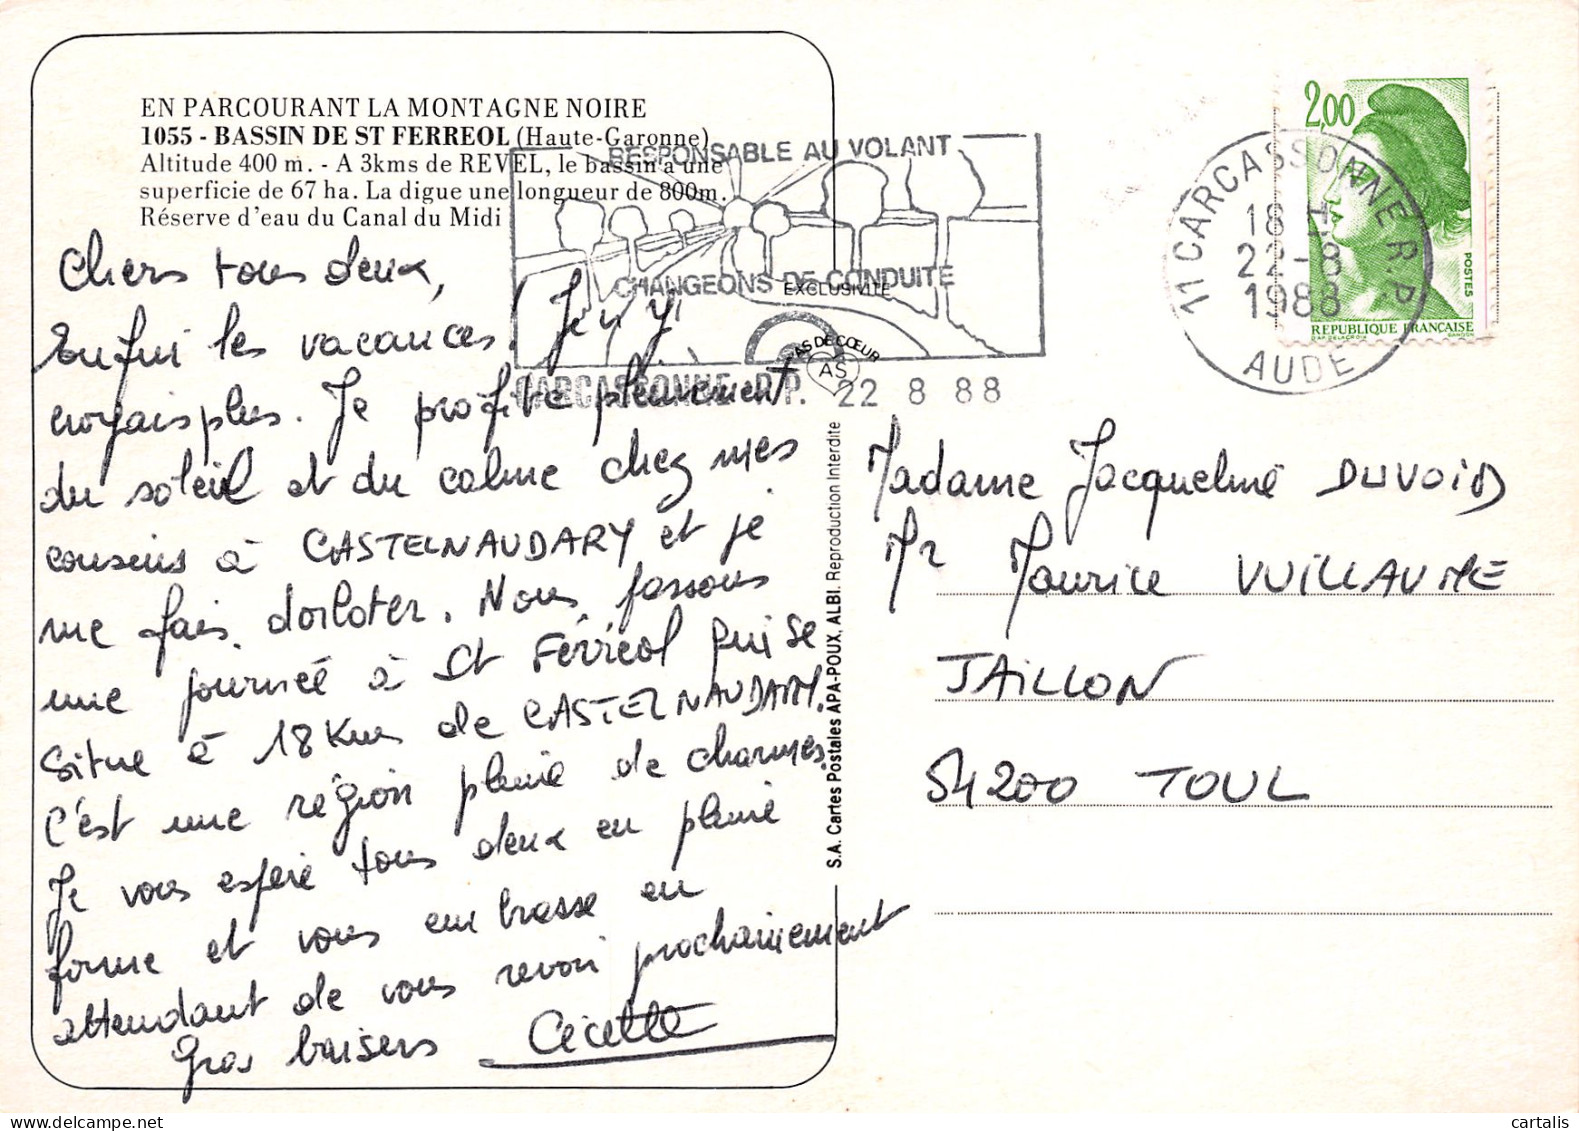 EN PARCOURANT LA MONTAGNE NOIRE
1055 - BASSIN DE ST FERREOL (Haute-Garonne)
Altitude 400 m. - A 3kms de REVEL, le bassin a une
superficie de 67 ha. La digue une longueur de 800m.
Réserve d'eau du Canal du Midi
Chers tous deux,
Enfin les vacances ! Je n'y
croyais plus. Je profite pleinement
du soleil et du calme chez mes
cousins à CASTELNAUDARY et je
me fais dorloter. Nous passons
une journée à St Férréol qui se
situe à 18 Kms de CASTELNAUDARY.
C'est une région pleine de charmes.
Je vous espère tous deux en pleine
forme et vous embrasse en
attendant de vous revoir prochainement
Gros baisers Cécette
RESPONSABLE AU VOLANT
CHANGEONS DE CONDUITE
CARCASSONNE R.P. 22 8 88
EXCLUSIVITE
AS DE CŒUR
AS
S.A. Cartes Postales APA-POUX, ALBI. Reproduction Interdite
2,00
POSTES
REPUBLIQUE FRANCAISE
D'AP. DELACROIX GANDON
11 CARCASSONNE R.P.
18 H
22-8
1988
AUDE
Madame Jacqueline DUVOID
Mr Maurice VUILLAUME
JAILLON
54200 TOUL
cartalis